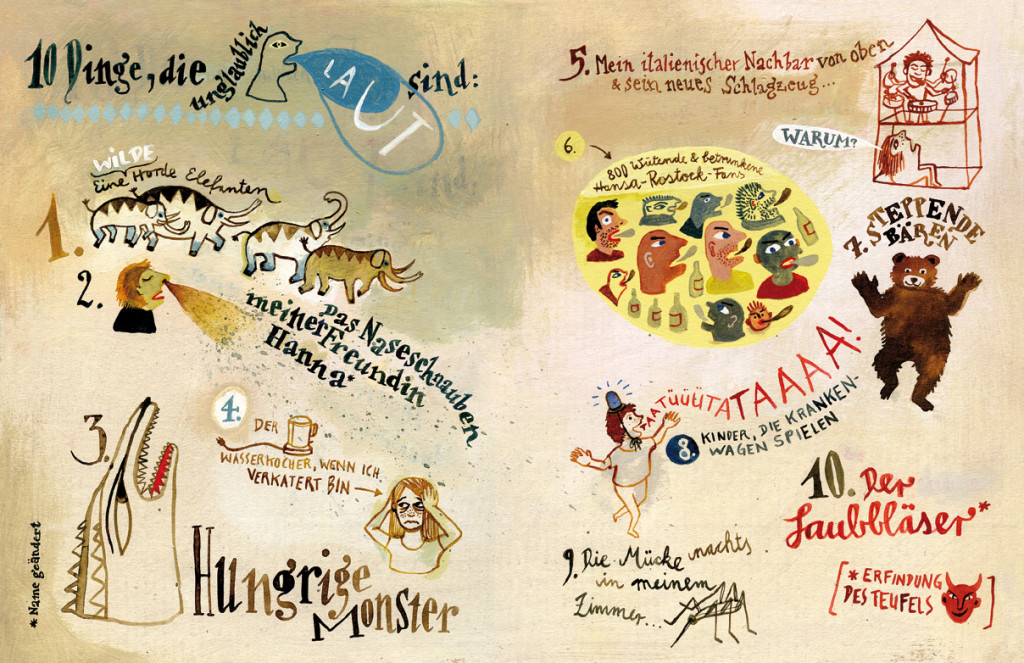 10 Dinge, die unglaublich LAUT sind:
1.
WILDE
Eine Horde Elefanten
2.
Das Naseschnauben
meiner Freundin
Hanna*
3.
Hungrige
Monster
4.
DER
WASSERKOCHER, WENN ICH
VERKATERT BIN
* Name geändert
5. Mein italienischer Nachbar von oben
& sein neues Schlagzeug...
WARUM?
6.
800 Wütende & betrunkene
Hansa-Rostock-Fans
7. STEPPENDE
BÄREN
TAATÜÜÜTATAAAA!
8. KINDER, DIE KRANKEN-
WAGEN SPIELEN
9. Die Mücke nachts
in meinem
Zimmer...
10. Der
Laubbläser*
[* ERFINDUNG
DES TEUFELS]